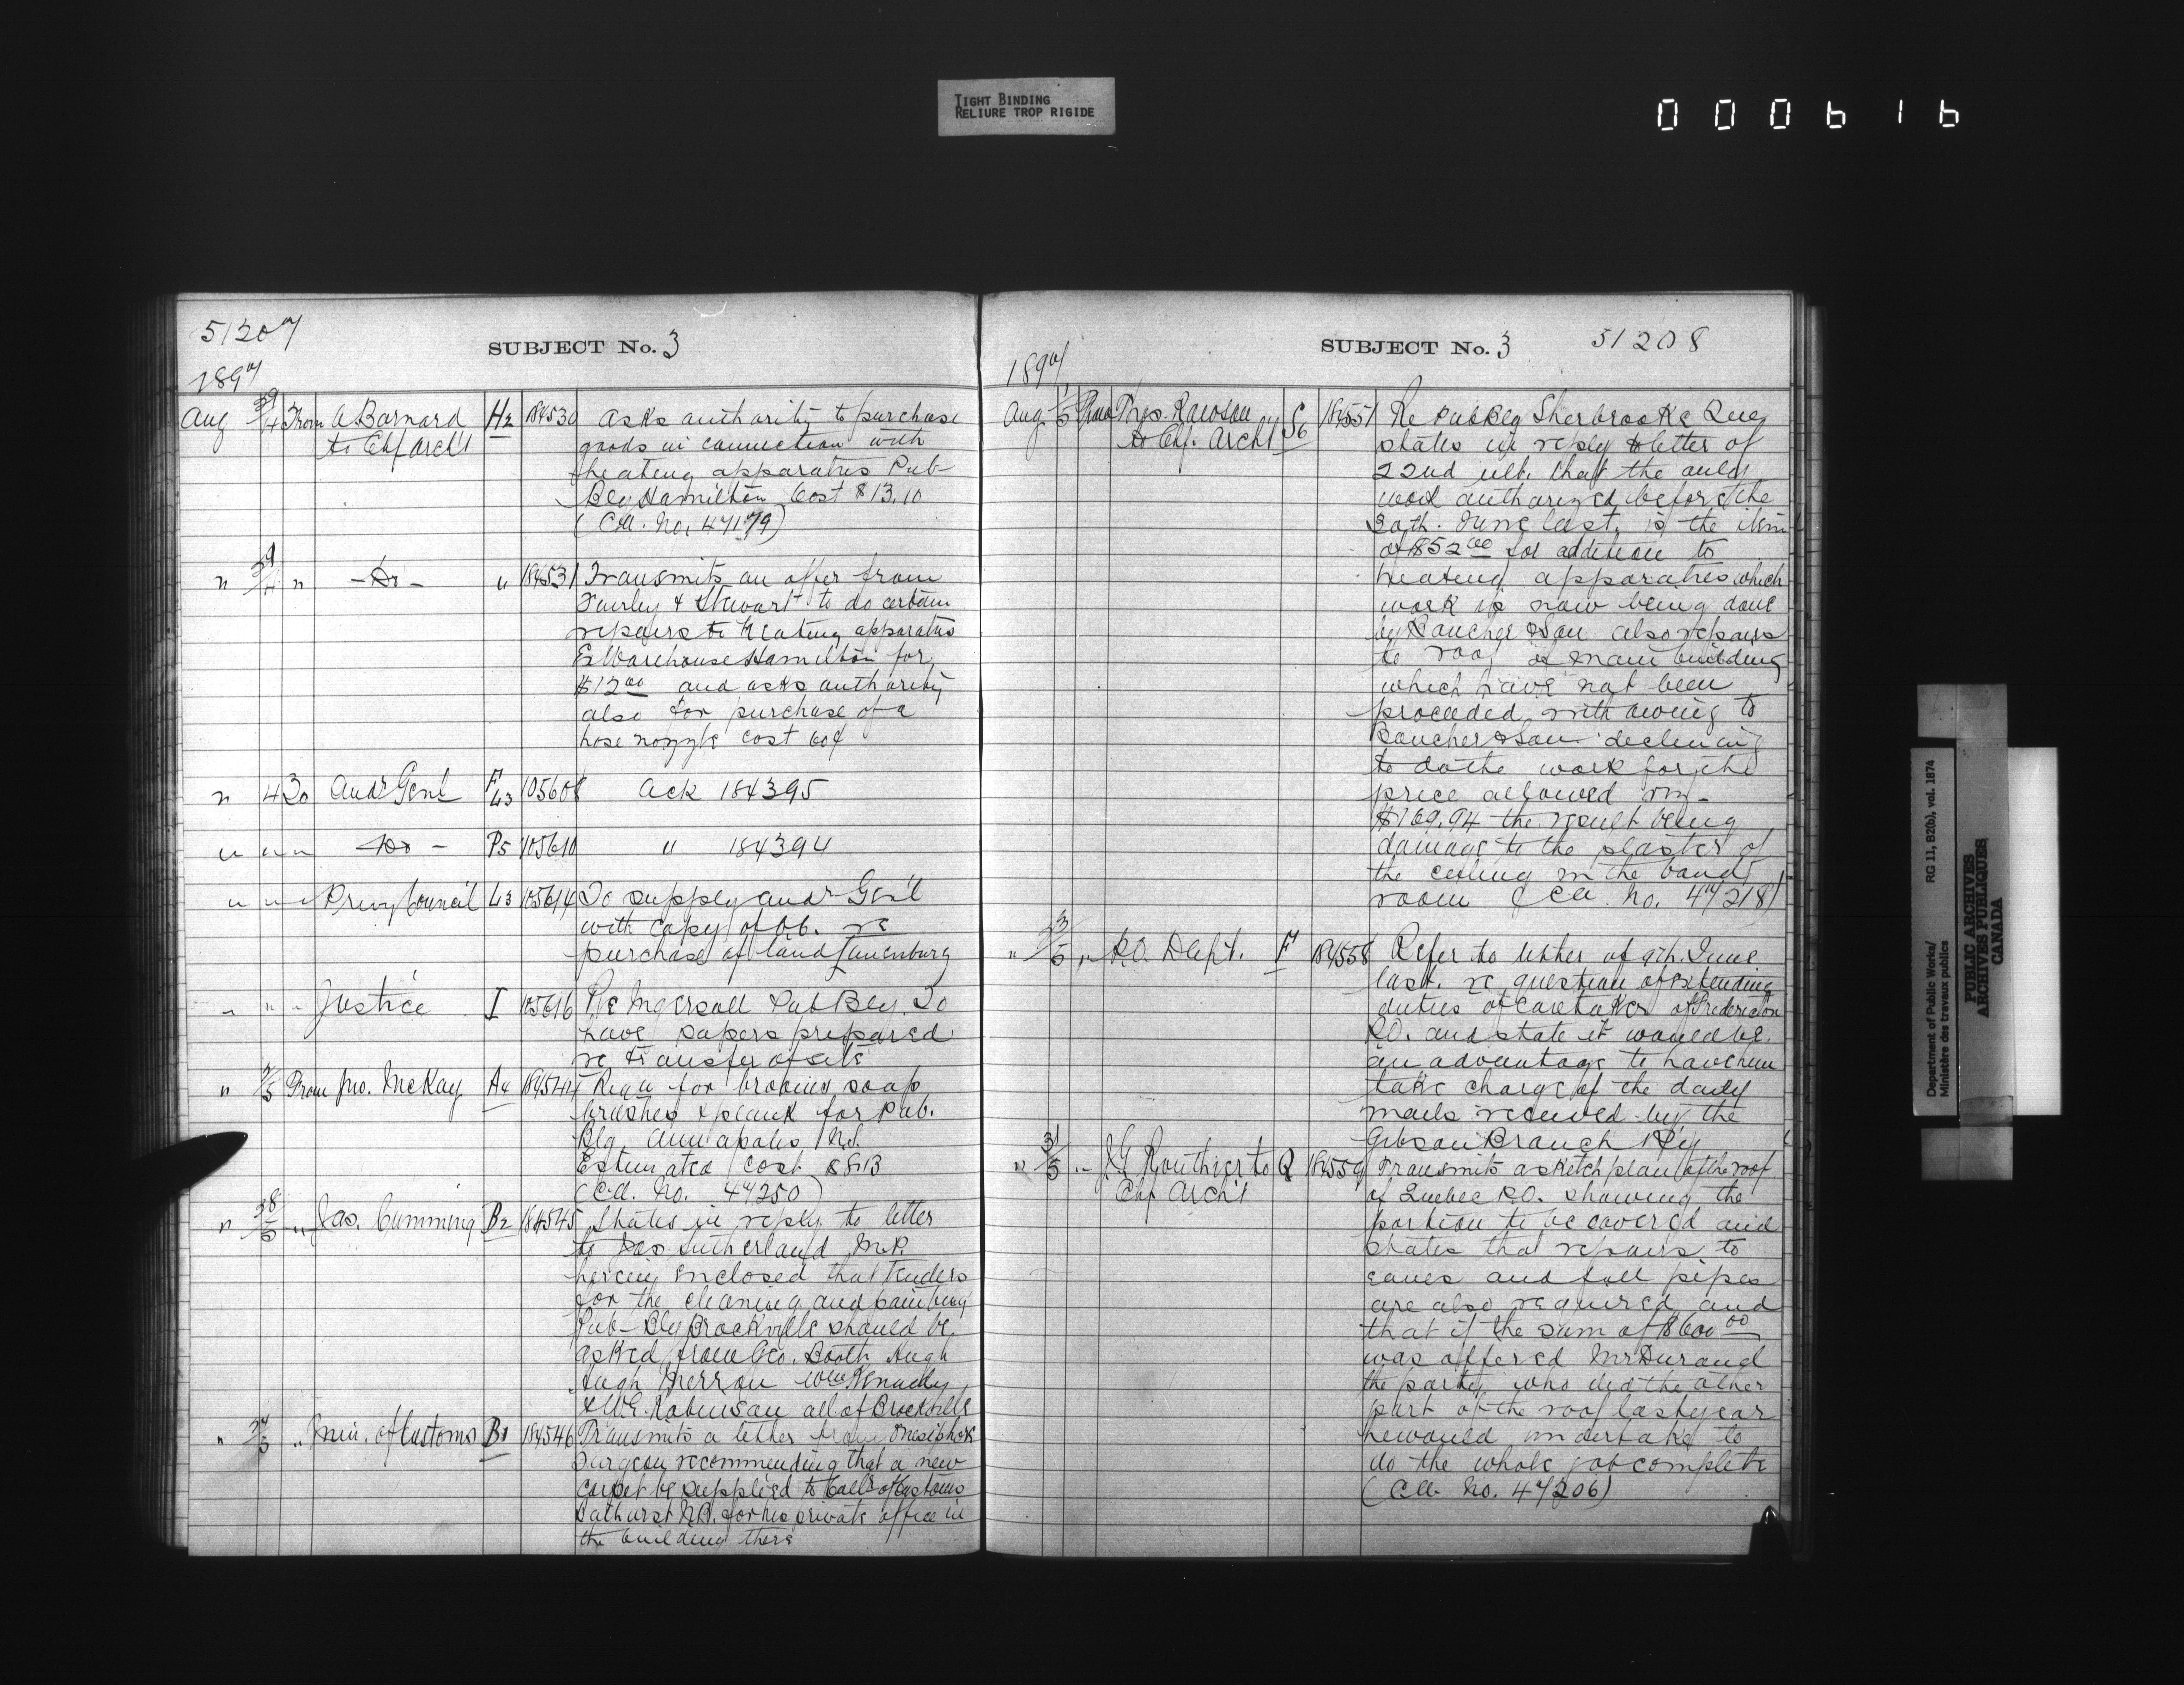 TIGHT BINDING
RELIURE TROP RIGIDE
000616
51207
SUBJECT No. 3
1897
Aug 39/4 From A Barnard H2 184530 Asks authority to purchase
to Chf Arch't goods in connection with
heating apparatus Pub-
Blg Hamilton Cost $13.10
(Cll. No. 47179)
" 39/4 " - Do - " 184531 Transmits an offer from
Fairley & Stewart to do certain
repairs to heating apparatus
Ex Warehouse Hamilton for
$12 00 and asks authority
also for purchase of a
hose nozzle cost 60¢
" 4 To Aud Genl F L3 105608 Ack 184395
" " " - Do - P5 105610 " 184394
" " " Privy Council L3 105614 To supply Aud Gen'l
with copy of O.C. re
purchase of land Lunenburg
" " " Justice I 105616 Re Ingersoll Pub Blg. To
have papers prepared
re transfer of site
" 2/5 From Jno. McKay A4 184544 Requ for brooms soap
brushes & plank for Pub.
Blg Annapolis N.S.
Estimated cost $8.13
(Cll. No. 47250)
" 38/5 " Jas. Cumming B2 184545 States in reply to letter
to Jas. Sutherland M.P.
herein enclosed that tenders
for the cleaning and painting
Pub- Blg Brockville should be
asked from Geo. Booth Hugh
Hugh Wm Kennedy
& W.E. Robinson all of Brockville
" 37/5 " Min. of Customs B1 184546 Transmits a letter from Onesiphore
Turgeon recommending that a new
carpet be supplied to Coll'r of Customs
Bathurst N.B. for his private office in
the building there
SUBJECT No. 3 51208
1897
Aug /5 From Thos. Rawson S6 184551 Re Pub Blg Sherbrooke Que
to Chf. Arch't states in reply to letter of
22nd ult. that the only
work authorized before the
30th. June last, is the item
of $852 00 for addition to
heating apparatus which
work is now being done
by Boucher & Son also repairs
to roof of main building
which have not been
proceeded with owing to
Boucher & Son declining
to do the work for the
price allowed
$169.94 the result being
damage to the plaster of
the ceiling in the band
room (Cll. No. 47218)
" 33/5 " P.O. Dept. F 184558 Refer to letter of 9th. June
last. re question of extending
duties of caretaker of Fredericton
P.O. and state it would be
an advantage to have him
take charge of the daily
mails received by the
Gibson Branch Rly
" 31/5 " J.G Routhier to Q 184559 Transmits a sketch plan of the roof
Chf Arch't of Quebec P.O. showing the
portion to be covered and
states that repairs to
eaves and fall pipes
are also required and
that if the sum of $600 00
was offered Mr Durand
the party who did the other
part of the roof last year
he would undertake to
do the whole job complete
(Cll. No. 47206)
Department of Public Works/ RG 11, B2(b), vol. 1874
Ministère des travaux publics
PUBLIC ARCHIVES
ARCHIVES PUBLIQUES
CANADA